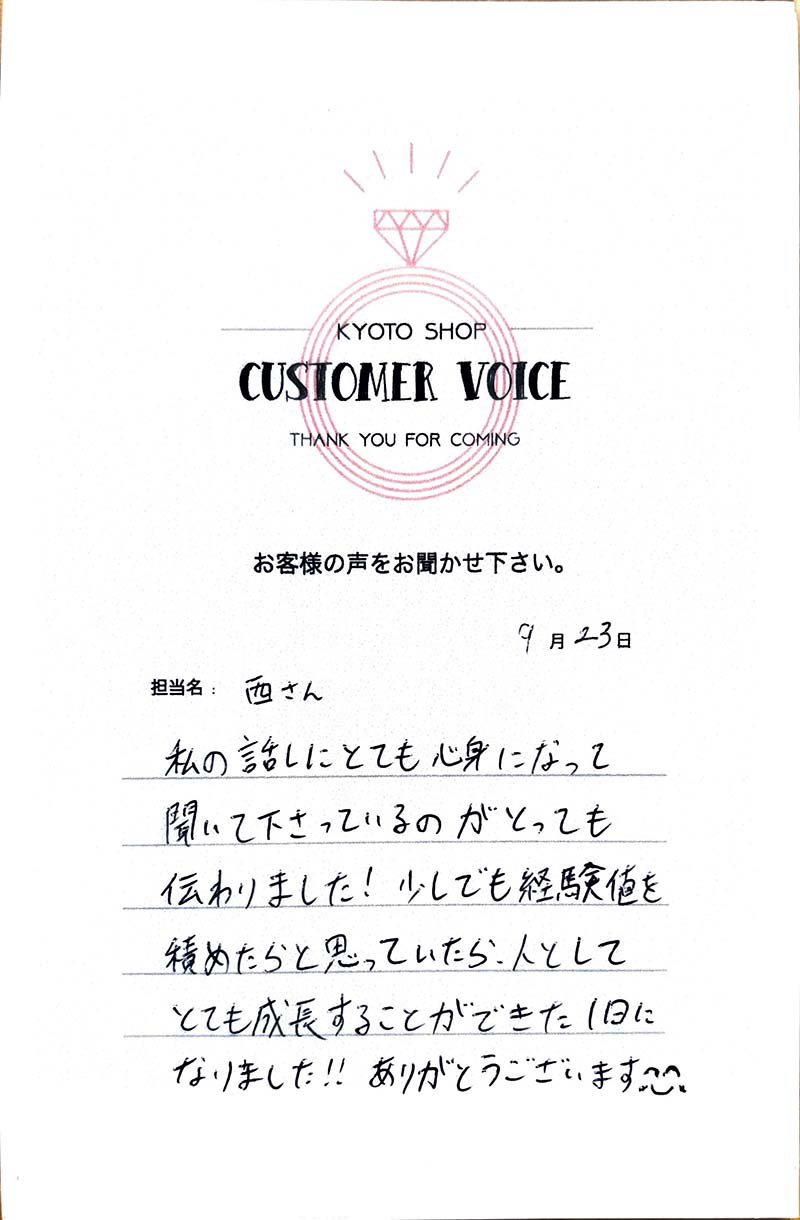 KYOTO SHOP
CUSTOMER VOICE
THANK YOU FOR COMING
お客様の声をお聞かせ下さい。
9月23日
担当名： 西さん
私の話しにとても心身になって
聞いて下さっているのがとっても
伝わりました! 少しでも経験値を
積めたらと思っていたら、人として
とても成長することができた1日に
なりました!! ありがとうございます